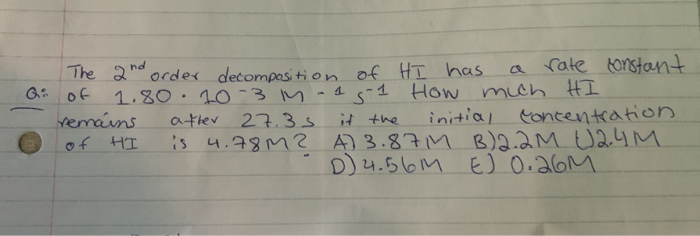 The 2nd order decomposition of HI has a rate constant
Q: of 1.80 · 10-3 M-1 s-1 How much HI
remains after 27.3s if the initial concentration
of HI is 4.78M? A) 3.87M B) 2.2M C) 2.4M
D) 4.56M E) 0.26M